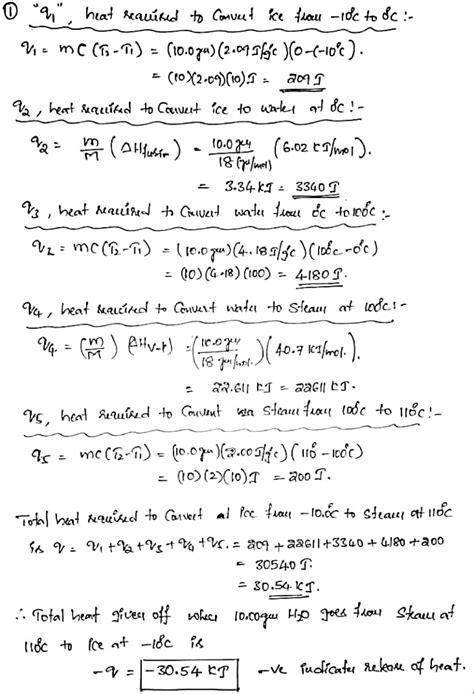 ① "q₁", heat required to Convert ice from -10°C to 0°C :-
q₁ = mC(T₂-T₁) = (10.0gm)(2.09J/g°c)(0-(-10°c).
= (10)(2.09)(10)J = 209J
q₂, heat required to Convert ice to water at 0°C :-
q₂ = m/M (ΔHfusion) = 10.0gm/18(gm/mol) (6.02 KJ/mol).
= 3.34KJ = 3340J
q₃, heat required to Convert water from 0°C to 100°C :-
q₂ = mc(T₂-T₁) = (10.0gm)(4.18J/g°c)(100°c-0°c)
= (10)(4.18)(100) = 4180J.
q₄, heat required to Convert water to Steam at 100°C :-
q₄ = (m/M) (ΔHV-P) = (10.0gm/18 gm/mol.)(40.7 KJ/mol.).
= 22.611 KJ = 22611 KJ.
q₅, heat required to Convert Steam from 100°C to 110°C :-
q₅ = mc(T₂-T₁) = (10.0gm)(2.00J/g°c)(110°-100°c)
= (10)(2)(10)J = 200J.
Total heat required to Convert at ice from -10.0C to Steam at 110°C
is q = q₁+q₂+q₃+q₄+q₅. = 209+22611+3340+4180+200
= 30540 J.
= 30.54 KJ.
∴ Total heat given off when 10.00gm H₂O goes from Steam at
110°C to ice at -10°C is
-q = -30.54 KJ -ve indicates release of heat.